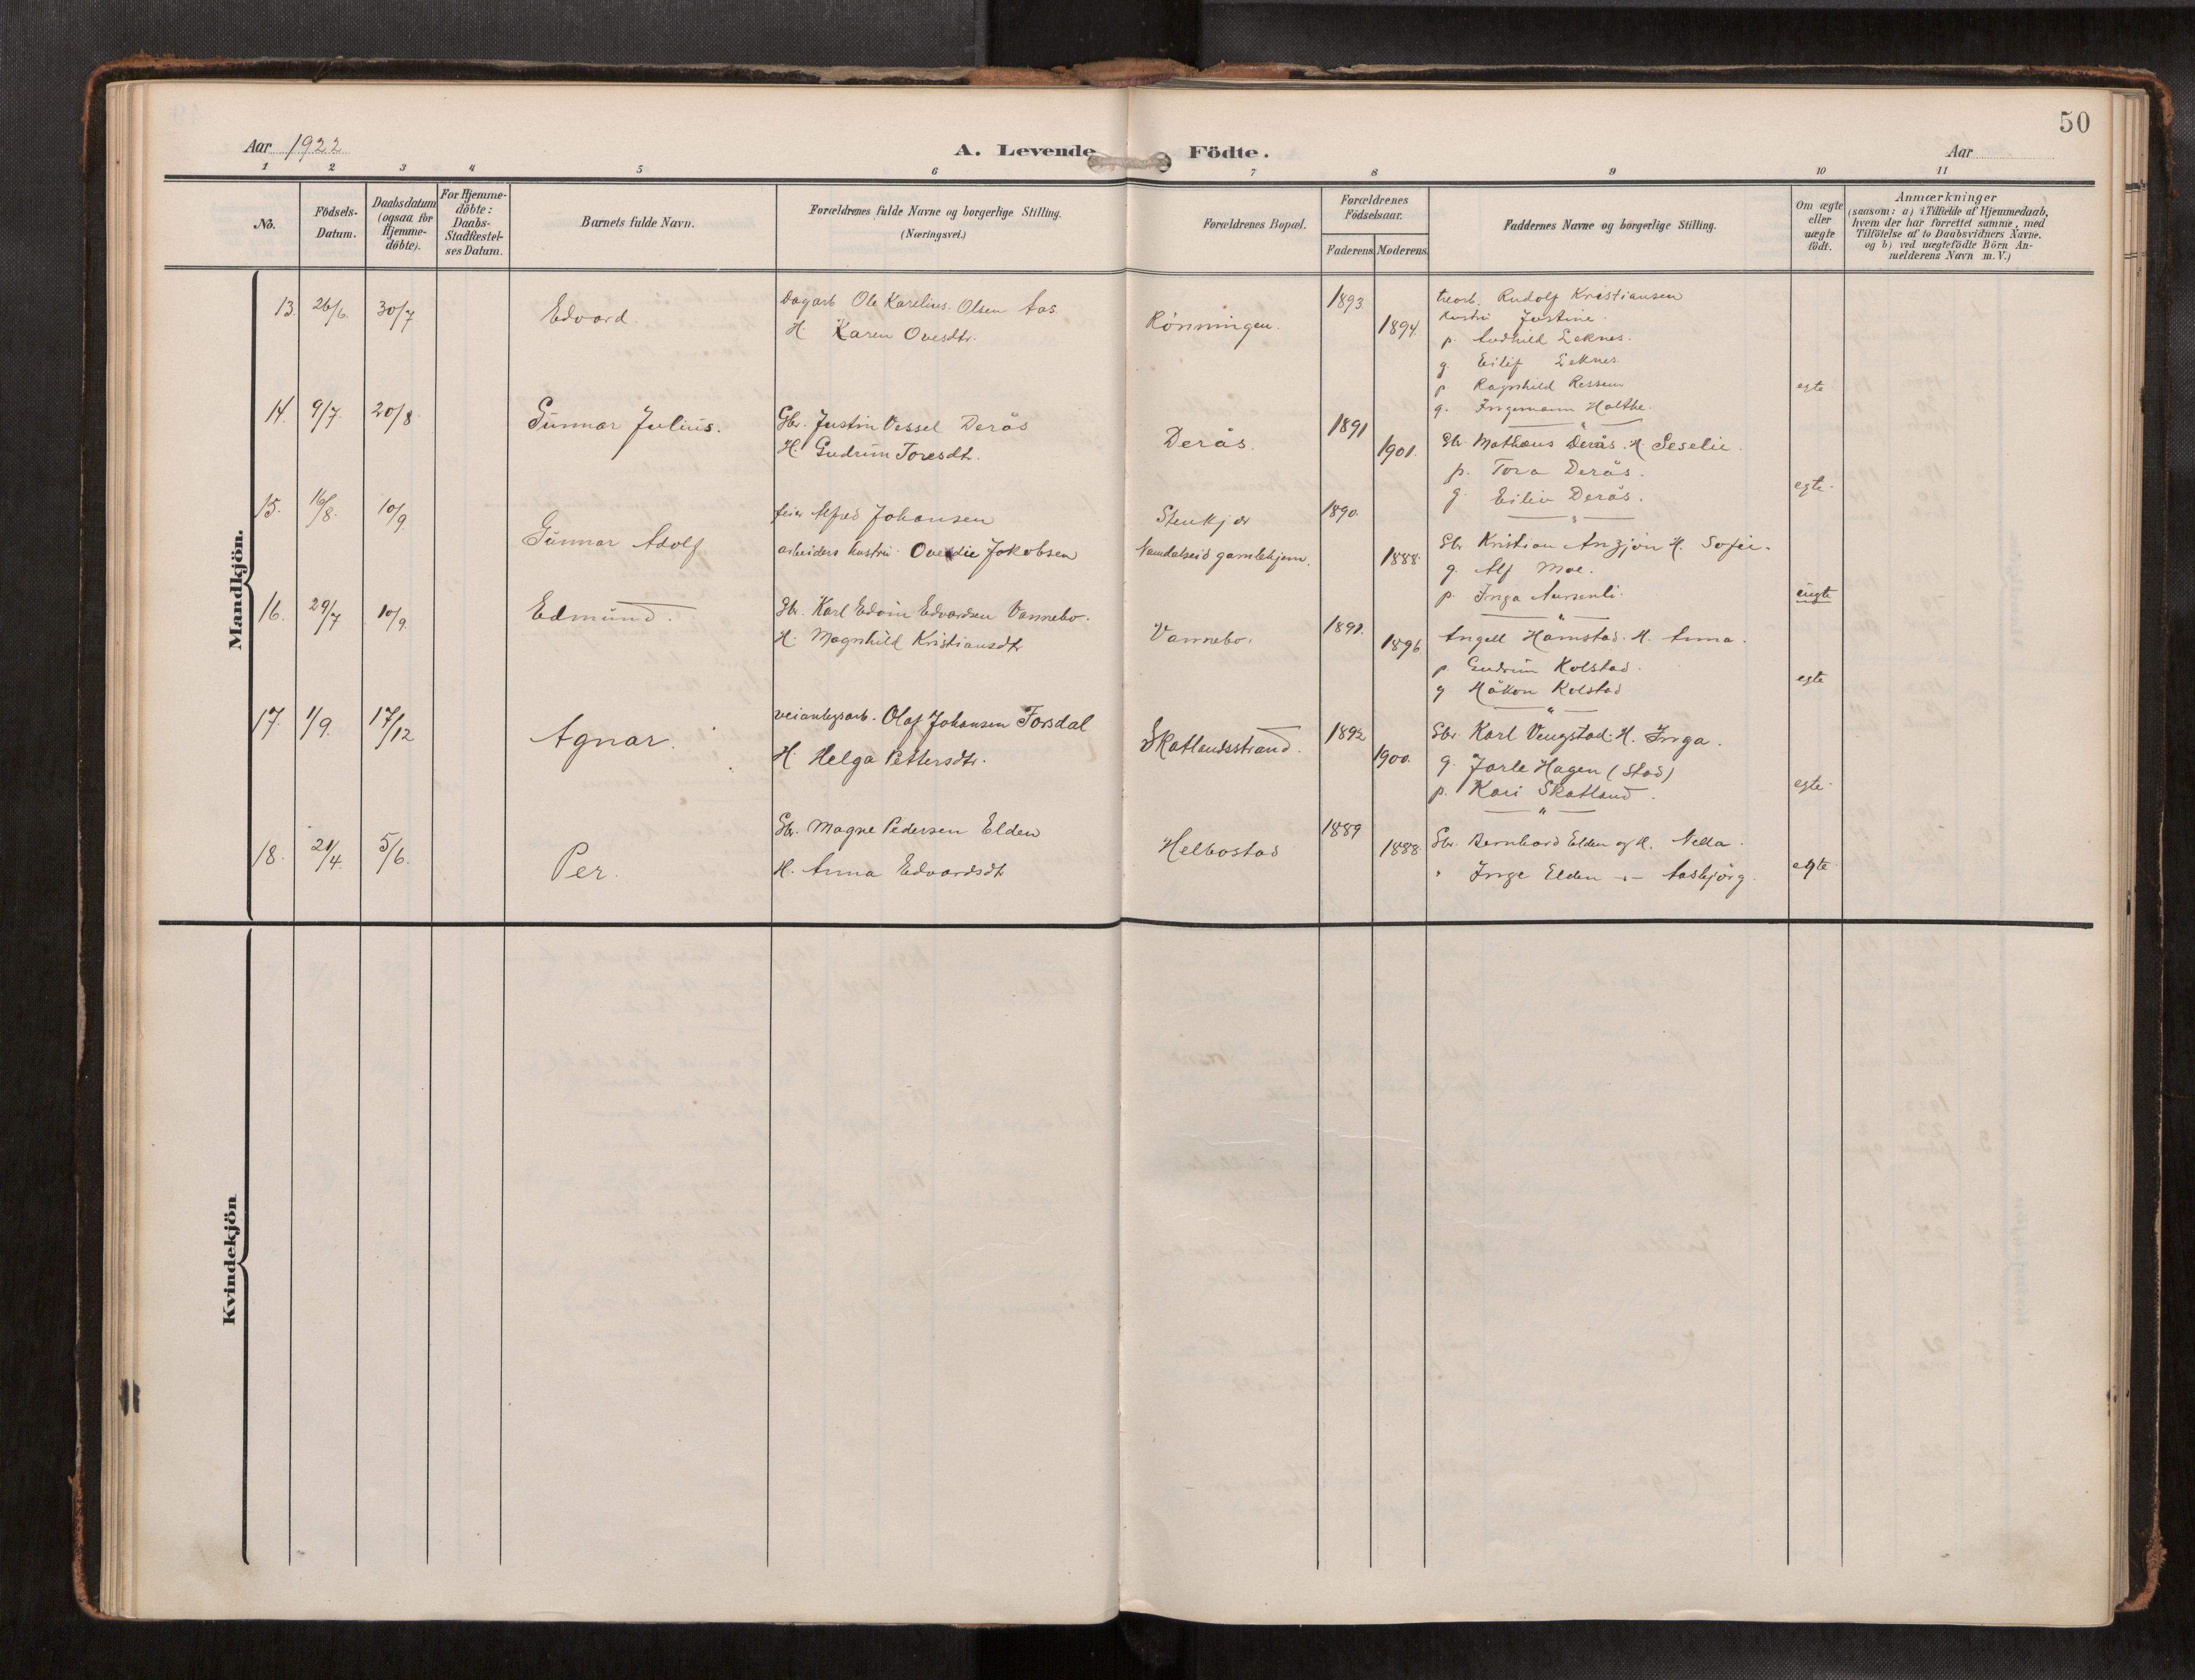 50
Aar 1922
A. Levende Födte.
Aar
1 2 3 4 5 6 7 8 9 10 11
No.
Födsels-
Datum.
Daabsdatum
(ogsaa for
Hjemme-
döbte).
For Hjemme-
döbte:
Daabs-
Stadfæstel-
ses Datum.
Barnets fulde Navn.
Forældrenes fulde Navne og borgerlige Stilling.
(Næringsvei.)
Forældrenes Bopæl.
Forældrenes
Födselsaar.
Faderens. Moderens.
Faddernes Navne og borgerlige Stilling.
Om ægte
eller
uægte
födt.
Anmærkninger
(saasom: a) i Tilfælde af Hjemmedaab,
hvem der har forrettet samme, med
Tilföielse af to Daabsvidners Navne.
og b) ved uægtefödte Börn An-
melderens Navn m. V.)
Mandkjön.
13. 26/6. 30/7 Edvard.
Dagarb Ole Karelius Olsen Aas
H. Karen Ovesdtr.
Rönningen. 1893. 1894.
Rudolf Kristiansen
Hustru Justine.
p. Audhild Leknes.
g. Eilif Leknes
p Ragnhild Ressem
g. Ingemann Holthe.
egte
14. 9/7. 20/8 Gunnar Julius.
Gbr. Justin Vessel Derås
H. Gudrun Toresdt.
Derås. 1891 1901.
Gbr Mathæus Derås. H. Seselie.
p. Tora Derås.
g. Eiliv Derås.
egte.
15. 16/8. 10/9. Gunnar Adolf
feier Alfred Johansen
arbeiders hustru. Ovedie Jakobsen
Stenkjær
Namdalseid gamlehjem.
1890. 1888.
Gbr Kristian Anzjön H. Sofie.
g. Alf Moe.
p. Inga Aursenli.
uegte
16. 29/7 10/9. Edmund.
Gbr. Karl Edvin Edvardsen Vannebo.
H. Magnhild Kristiansdtr
Vannebo. 1891. 1896.
Angell Hamstad. H. Anna.
p Gudrun Kolstad.
g Håkon Kolstad
egte
17. 1/9. 17/12 Agnar.
veianlegsarb. Olaf Johansen Forsdal
H. Helga Pettersdtr.
Skatlandsstrand. 1892 1900.
Gbr. Karl Vengstad. H. Inga.
g. Jarle Hagen (Stod)
p. Kari Skatland.
egte.
18. 21/4. 5/6. Per.
Gbr. Magne Pedersen Elden
H. Anna Edvardsdt
Helbostad 1889 1888.
Gbr. Bernhard Elden og H. Nella.
" Inge Elden -"- Aasbjörg.
egte.
Kvindekjön